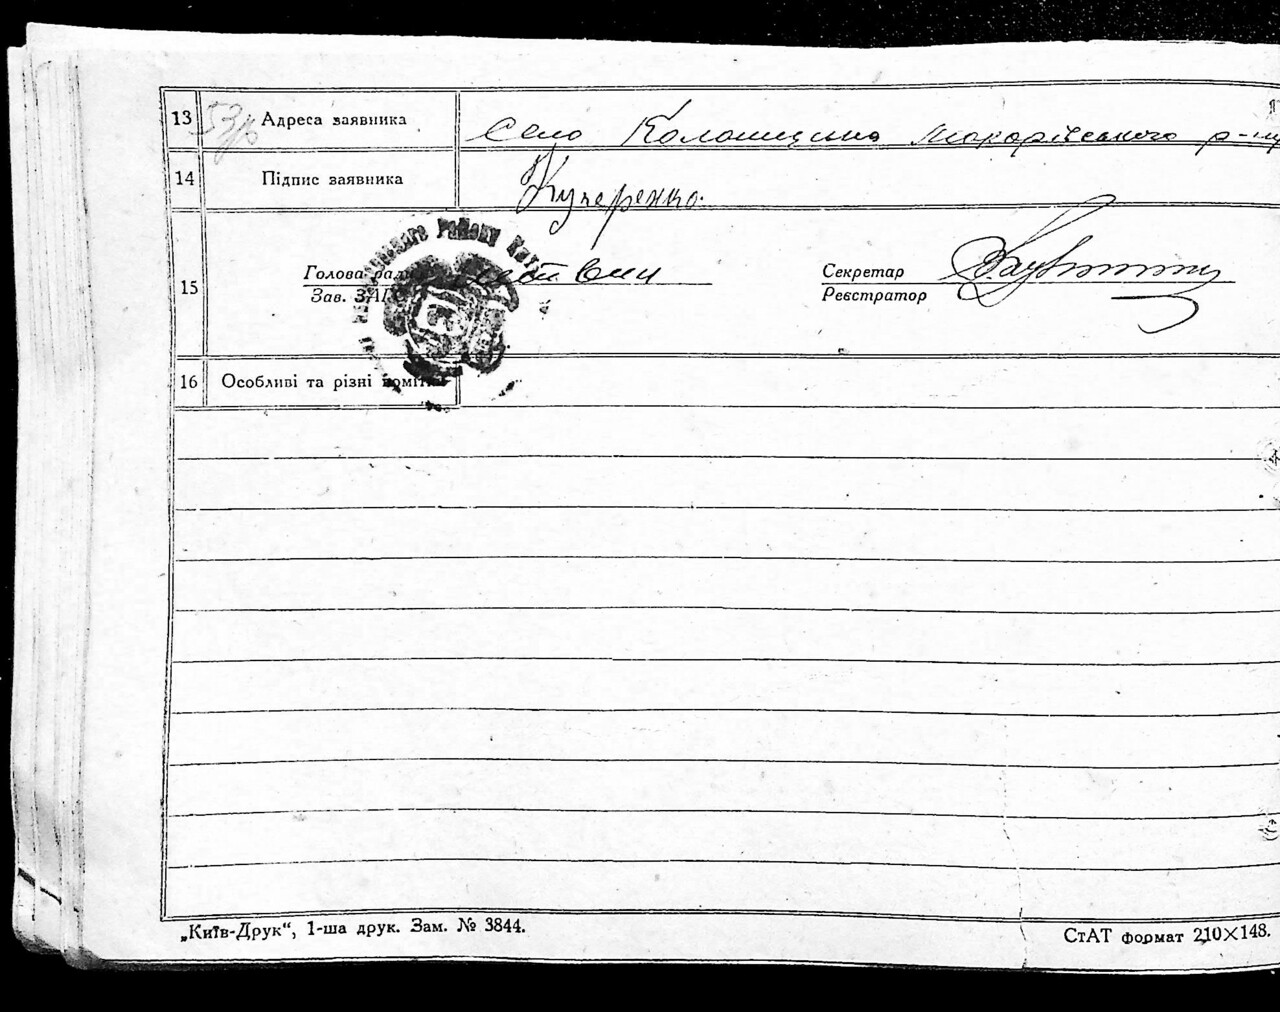 13 Адреса заявника Село Колонщина Макарівського р-ну
14 Підпис заявника Кучеренко.
15 Голова ради
Зав. ЗАГС
Секретар
Реєстратор
району
16 Особливі та різні помітки
„Київ-Друк“, 1-ша друк. Зам. № 3844.
СтАТ формат 210×148.